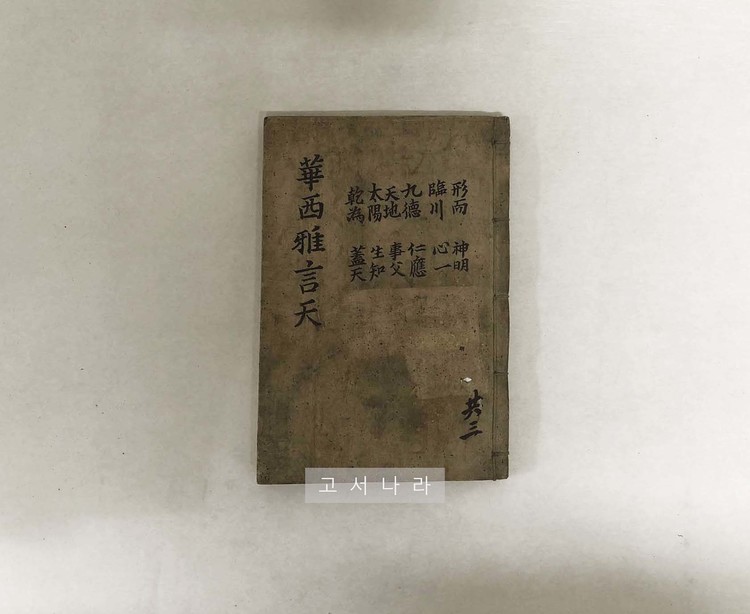 華西雅言天
形而 神明
臨川 心一
九德 仁應
天地 事父
太陽 生知
乾為 蓋天
共三
고서나라